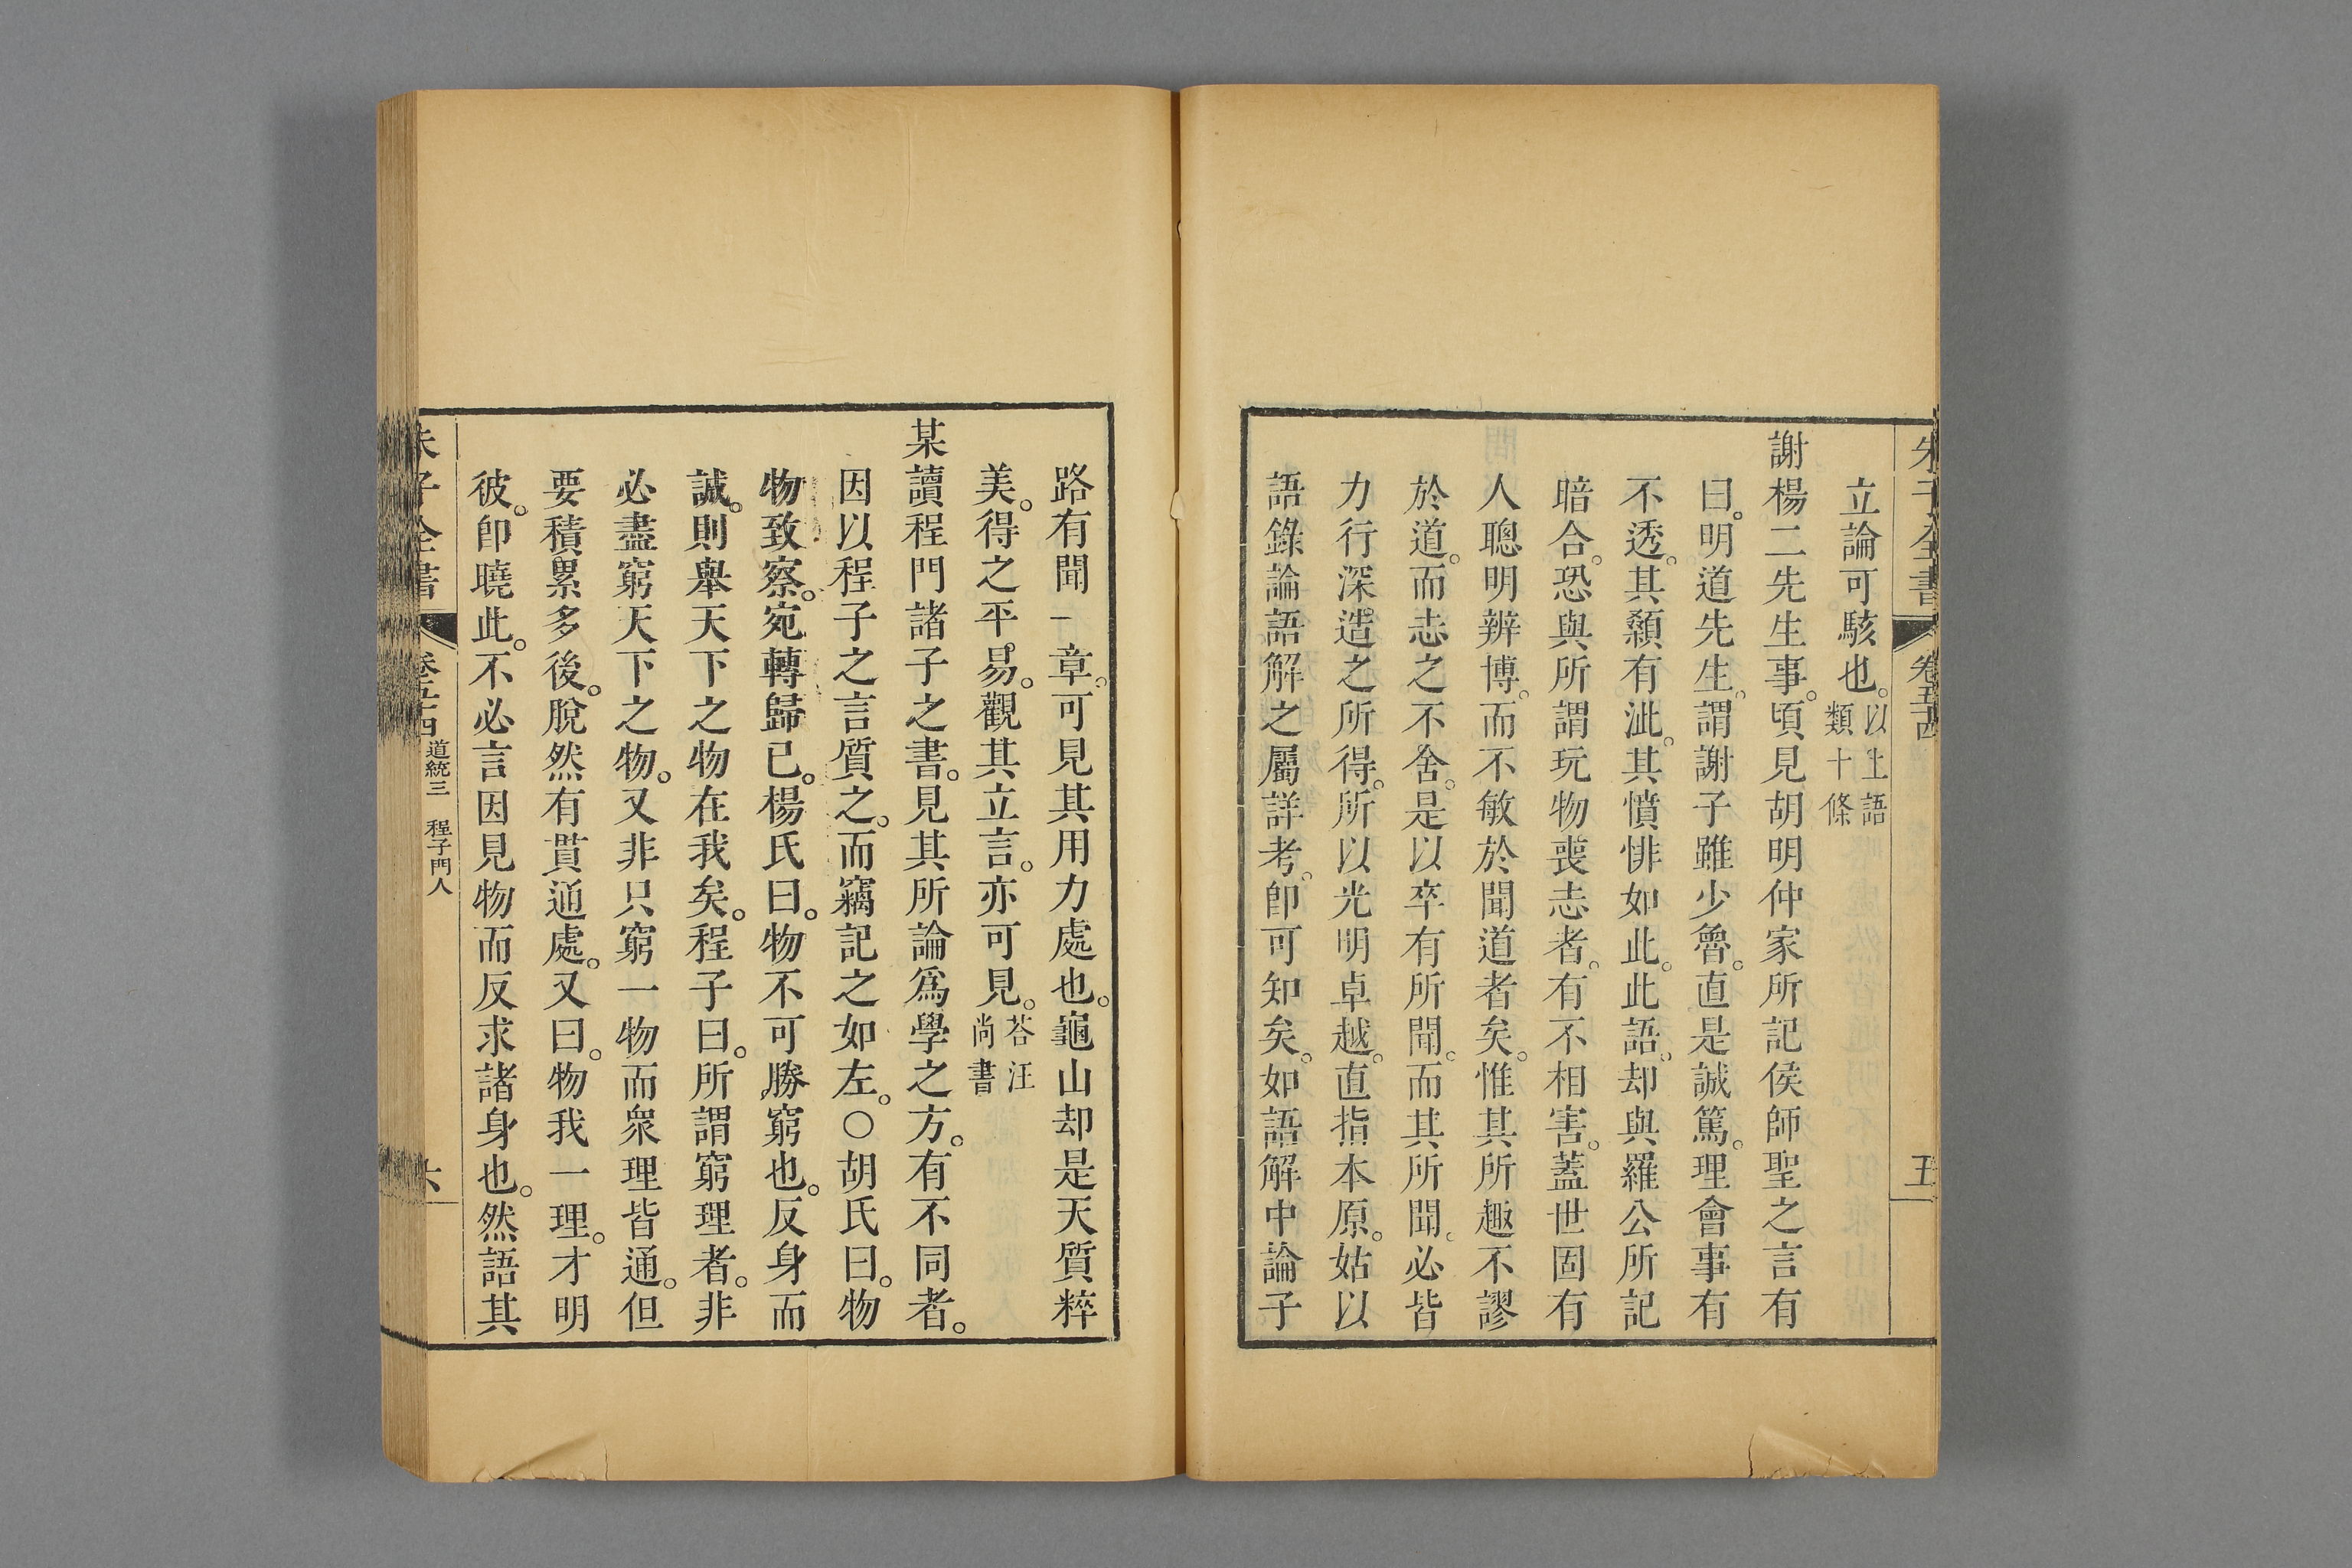 朱子全書 卷五十四 五
立論可駭也。以上語類十條
謝楊二先生事。頃見胡明仲家所記侯師聖之言有
曰。明道先生。謂謝子雖少魯。直是誠篤。理會事有
不透。其顙有泚。其憤悱如此。此語。却與羅公所記
暗合。恐與所謂玩物喪志者。有不相害。蓋世固有
人聰明辨博。而不敏於聞道者矣。惟其所趣不謬
於道。而志之不舍。是以卒有所聞。而其所聞。必皆
力行深造之所得。所以光明卓越。直指本原。姑以
語錄論語解之屬詳考。卽可知矣。如語解中論子
路有聞一章。可見其用力處也。龜山却是天質粹
美。得之平易。觀其立言。亦可見。荅汪尚書
某讀程門諸子之書。見其所論爲學之方。有不同者。
因以程子之言質之。而竊記之如左。○胡氏曰。物
物致察。宛轉歸已。楊氏曰。物不可勝窮也。反身而
誠。則舉天下之物在我矣。程子曰。所謂窮理者。非
必盡窮天下之物。又非只窮一物而衆理皆通。但
要積累多後。脫然有貫通處。又曰。物我一理。才明
彼。卽曉此。不必言因見物而反求諸身也。然語其
朱子全書 卷五十四 道統三 程子門人 六